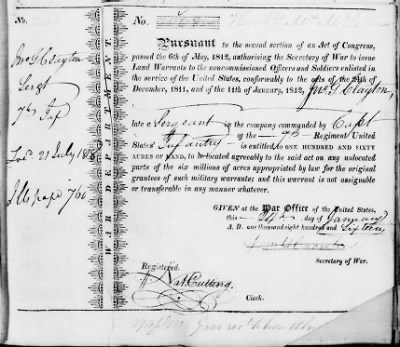 No.
No.
Pursuant to the second section of an Act of Congress,
passed the 6th of May, 1812, authorising the Secretary of War to issue
Land Warrants to the noncommissioned Officers and Soldiers enlisted in
the service of the United States, conformably to the acts of the 24th of
December, 1811, and of the 11th of January, 1812, Jno. G. Clayton,
late a Sergeant in the company commanded by Capt
of the 7th Regiment United
States' Infantry is entitled to ONE HUNDRED AND SIXTY
ACRES OF LAND, to be located agreeably to the said act on any unlocated
parts of the six millions of acres appropriated by law for the original
grantees of such military warrants; and this warrant is not assignable
or transferable in any manner whatever.
GIVEN at the War Office of the United States,
this day of January
A. D. one thousand eight hundred and sixteen
Secretary of War.
Registered,
Nat Cutting,
Clerk.
WAR DEPARTMENT.
Jno. G. Clayton
Sergt
7th Inf
21 July
Ills page 766